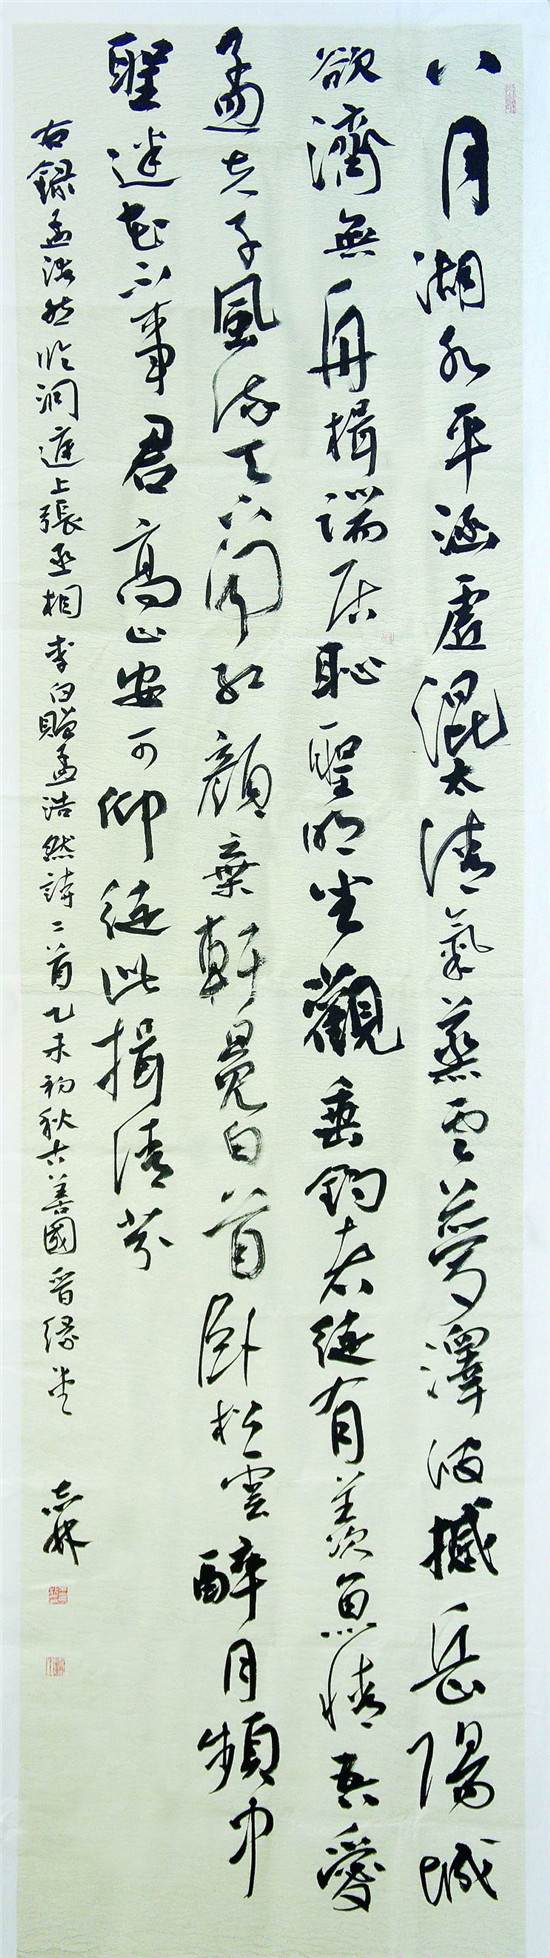 八月湖水平涵虚混太清氣蒸雲夢澤波撼岳陽城
欲濟無舟楫端居恥聖明坐觀垂釣者徒有羨魚情吾愛
孟夫子風流天下聞紅顔棄軒冕白首卧松雲醉月頻中
聖迷花不事君高山安可仰徒此揖清芬
右録孟浩然臨洞庭上張丞相李白贈孟浩然詩二首乙未初秋古善國晋緣堂
志林